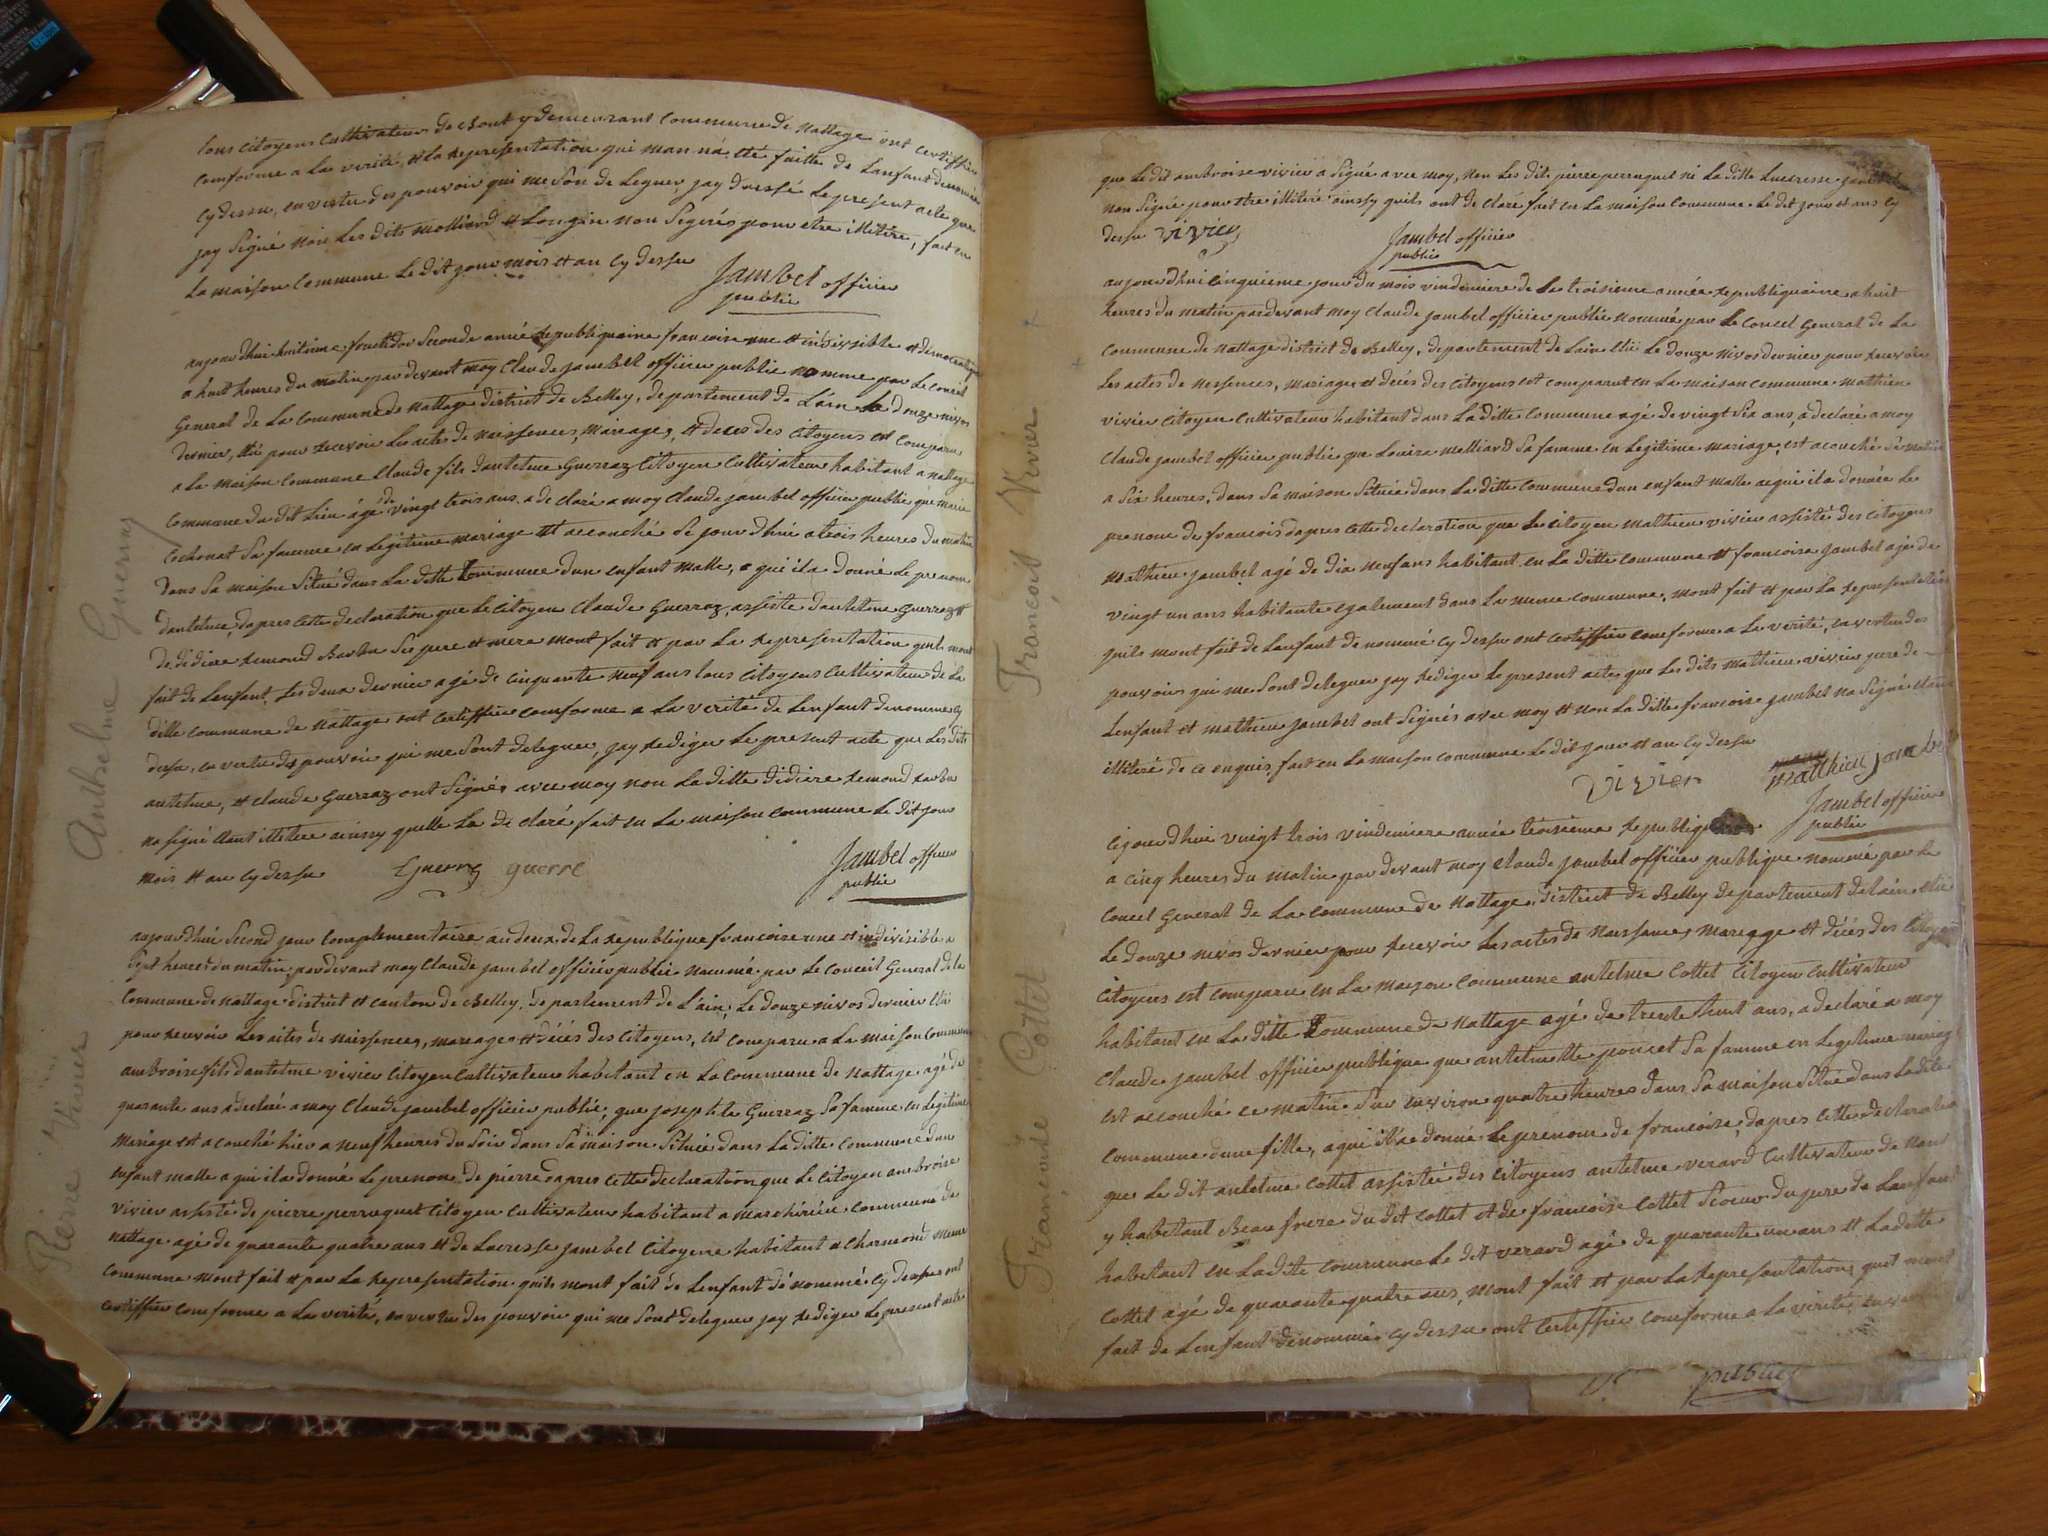 tous citoyens cultivateur de chout y demeurant commune de nattage ont certiffier
comforme a La verité, et La Representation qui man ná été faitte de Lanfant denommé
cy dessu, en vertu des pouvoir qui me son de Leguer jay dressé Le present acte que
jay signé non Les dits molliard et Longin non signés pour etre illitére, fait en
La maison Commune Le dit jour mois et an cy dessu
Jambel officier
public
aujourdhui huitieme fructidor seconde anné Republiquaine francoise une et indivisible et democratique
a huit heures du matin pardevant moy Claude jambel officier public nommé par Le conseil
General de La commune de nattage district de Belley, departement de Lain Le douze nivos
dernier, élu pour recevoir Les actes de naissences, mariages, et deces des citoyens est comparu
a La maison commune Claude fils dantelme Guerraz citoyen cultivateur habitant a nattage
commune du dit Lieu agé de vingt trois ans. a de claré a moy Claude jambel officier public que marie
Cochonat sa famme en Légitime mariage est accouché se jour dhui a trois heures du matin
dans sa maison situé dans La ditte commune dun enfant malle, a qui il a donné Le prenom
dantelme, dapres cette declaration que Le citoyen Claude Guerraz, assisté dantelme guerraz et
de didiere Remond Barbu ses pere et mere mont fait et par La Representation quils mont
fait de Lenfant, Les deux dernier agé de cinquante neuf ans tous citoyens cultivateur de La
ditte commune de nattage ont certiffier comforme a La verité de Lenfant denommé cy
dessu, en vertu des pouvoir qui me sont deleguer, jay Rediger Le present acte que Les dits
antelme, et Claude Guerraz ont signés avec moy non La ditte didiere Remond Barbu
na signé étant illitére ainssy quelle La de claré fait en La maison commune Le dit jour
mois et an cy dessu Guerre guerre
Jambel officier
public
Anthelme Guerraz
aujourdhui second jour complementaire an deux de La Republique francoise une et indivisible a
sept heures du matin, pardevant moy Claude jambel officier public nommé par Le conseil General de La
commune de nattage district et canton de Belley, departement de Lain, Le douze nivos dernier élu
pour recevoir Les actes de naissences, mariages et décés des citoyens, est comparu a La maison commune
ambroise fils dantelme vivier citoyen cultivateur habitant en La commune de nattage agé de
quarante ans a declaré a moy Claude jambel officier public, que josephte Guerraz sa famme en Legitime
mariage est acouché hier a neuf heures du soir dans sa maison située dans La ditte commune dun
enfant malle a qui il a donné Le prenom de pierre dapres cette declaration que Le citoyen ambroise
vivier assisté de pierre perruquet citoyen cultivateur habitant a maschirieu commune de
nattage agé de quarante quatre ans et de Lucresse jambel citoyene habitant a charneoné meme
commune mont fait et par La Representation quils mont fait de Lenfant dénommé cy dessus ont
certiffier comforme a La verité, en vertu des pouvoir qui me sont deleguer jay Rediger Le present acte
Pierre Vivier
que Le dit ambroise vivier a signé avec moy, non Les dits pierre perruquet ni La ditte Lucresse jambel
non signé pour etre illitéré ainssy quils ont de claré fait en La maison commune Le dit jour et ans cy
dessu vivier
Jambel officier
public
aujourdhui cinquieme jour du mois vindemiere de La troisieme année Republiquaine a huit
heures du matin pardevant moy Claude jambel officier public nommé par Le conseil General de La
commune de nattage district de Belley, departement de Lain élu Le douze nivos dernier pour recevoir
Les actes de nessences, mariages et décés des citoyens est comparut en La maison commune mathieu
vivier citoyen cultivateur habitant dans La ditte commune agé de vingt six ans, a declaré a moy
Claude jambel officier public que Louise molliard sa famme en Legitime mariage, est acouché se matin
a six heures, dans sa maison située dans La ditte commune dun enfant malle a qui il a donnée Le
prenom de francois dapres cette declaration que Le citoyen mathieu vivier assisté des citoyens
mathieu jambel agé de dix neuf ans habitant en La ditte commune et francoise jambel agé de
vingt un ans habitante egalement dans La meme commune, mont fait et par La Representation
quils mont fait de Lenfant de nommé cy dessu ont certiffier comforme a La verité, en vertu des
pouvoirs qui me sont deleguer jay Rediger Le present acte que Les dits mathieu vivier pere de
Lenfant et mathieu jambel ont signés avec moy et non La ditte francoise jambel na signé étant
illitéré de ce enquis, fait en La maison commune Le dit jour et an cy dessu
vivier
Matthieu jambel
Jambel officier
public
François Vivier
Cejourdhui vingt trois vindemiere année troisieme Republiq
a cinq heures du matin par devant moy Claude jambel officier publique nommé par Le
Conseil General de La commune de nattage, district de Belley departement de Lain élu
Le douze nivos dernier pour Recevoir Les actes de naissances, mariage et décés des citoyens
Citoyens est comparu en La maison commune antelme Cottet citoyen cultivateur
habitant en La ditte commune de nattage agé de trente huit ans, a declaré a moy
Claude jambel officier publique que antelmette poncet sa famme en Legitime mariage
est accouché ce matin sur environ quatre heures dans sa maison située dans La dite
commune dune fille, a qui il a donné Le prenom de francoise, dapres cette declaration
que Le dit antelme Cottet assistée des citoyens antelme verard cultivateur de nant
y habitant Beau frere du dit Cottet et de francoise Cottet soeur du pere de Lanfant
habitant en La dite commune Le dit verard agé de quarante un ans et La ditte
Cottet agé de quarante quatre ans, mont fait et par La Representation, quil mont
fait de Lenfant denommé cy dessu ont certiffier comforme a La verité, en ver
Francoise Cottet
public